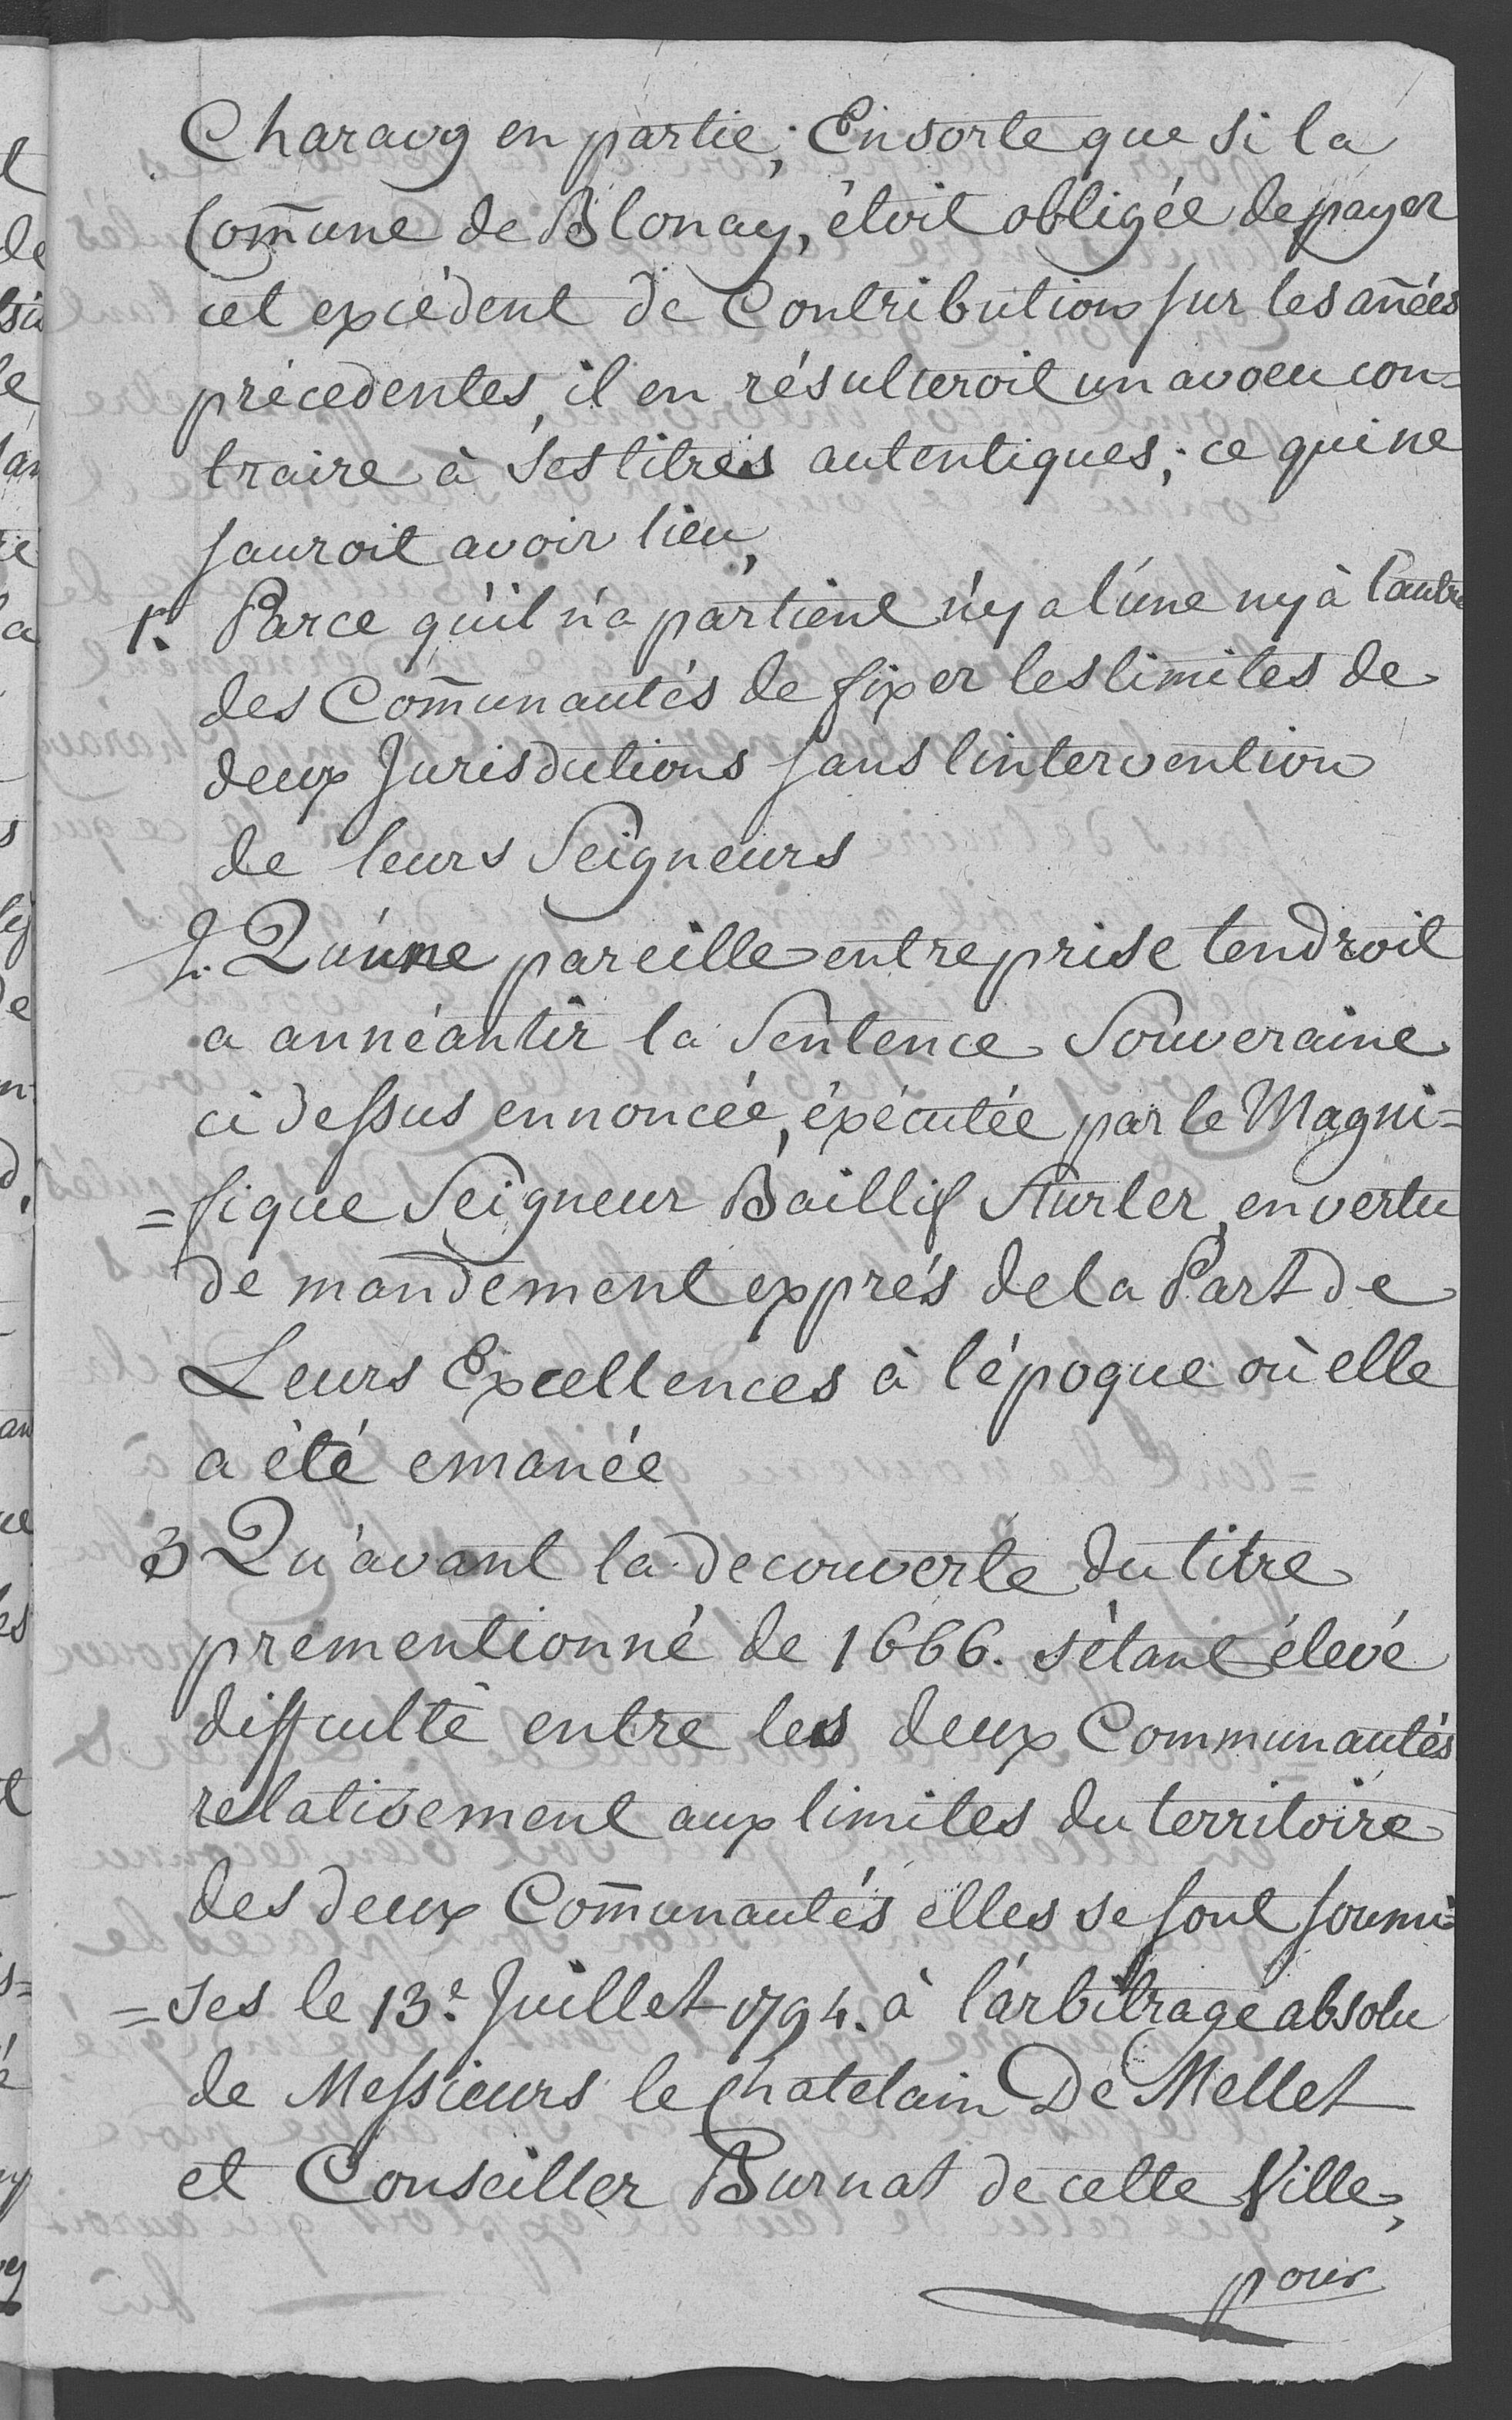 Charavy en partie; Ensorte que si la
Com̃une de Blonay, étoit obligée de payer
cet excédent de Contribution sur les añées
précedentes, il en résulteroit un avoeu con=
traire à ses titres autentiques; ce qui ne
sauroit avoir lieu,
1. Parce qu'il n'apartient n'y a l'une ny à l'autre
des Com̃unautés de fixer les limites de
deux Jurisdictions sans l'intervention
de leurs Seigneurs
2. Qu'une pareille entreprise tendroit
a annéantir la Sentence Souveraine
ci dessus ennoncée, éxécutée par le Magni=
=fique Seigneur Baillif Sturler, en vertu
de mandement exprés de la Part de
Leurs Excellences à l'époque où elle
a été emanée
3 Qu'avant la decouverte du titre
prementionné de 1666. s'étant élevé
difficulté entre les deux Communautés
relativement aux limites du territoire
des deux Com̃unautés elles se sont soumi=
=ses le 13e. Juillet 1794. à l'arbitrage absolu
de Messieurs le Chatelain De Mellet
et Conseiller Burnat de cette Ville,
pour